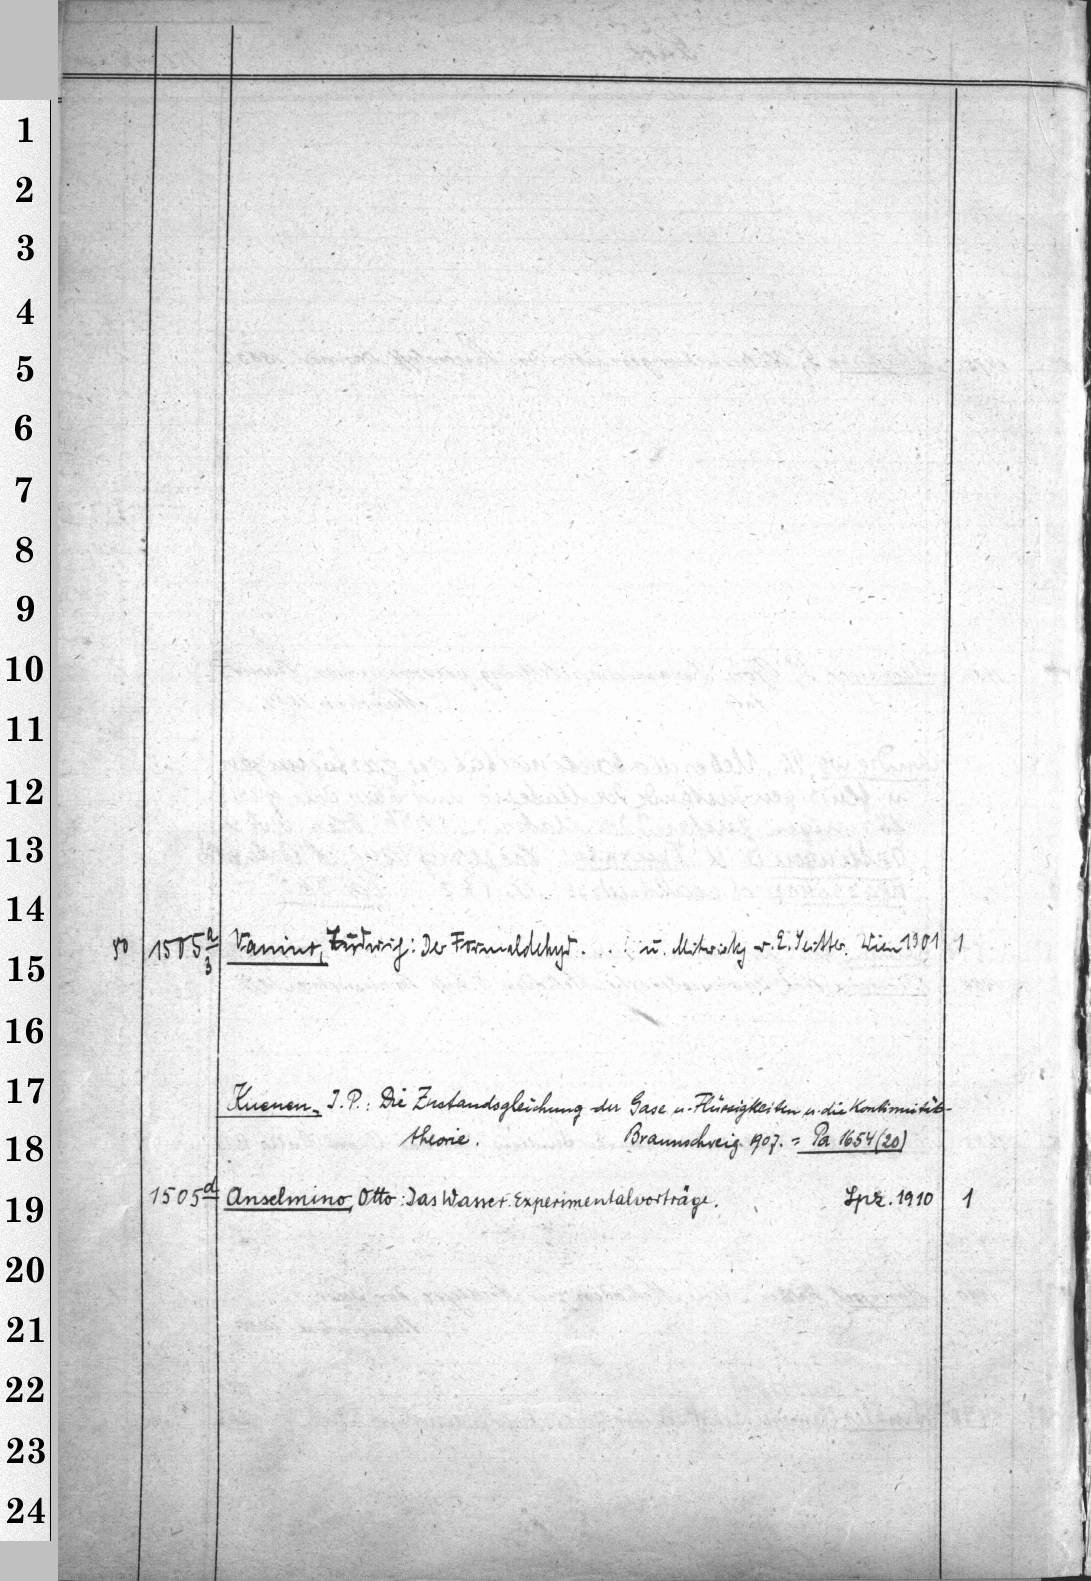 1
2
3
4
5
6
7
8
9
10
11
12
13
14
80 1505 a/3 Vanino, Ludwig: Der Formaldehyd. . . u. Mitwirkg v. E. Seitter. Wien 1901 1
15
16
17
Kuenen, J. P.: Die Zustandsgleichung der Gase u. Flüssigkeiten u. die Kontinuitäts-
18
theorie. Braunschweig 1907. = Pa 1654 (20)
19
1505 d Anselmino, Otto: Das Wasser. Experimentalvorträge. Lpz. 1910 1
20
21
22
23
24